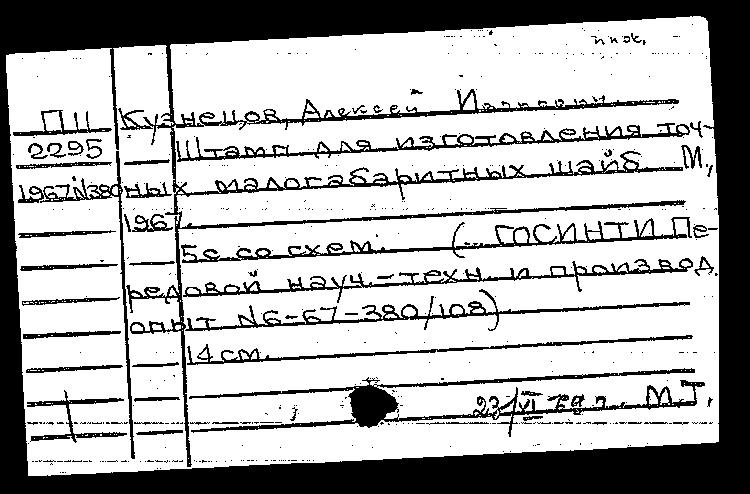 ннж.
П 11 Кузнецов, Алексей
2295 Штамп для изготовления точ-
1967 N380 ных малогабаритных шайб М.,
1967.
5с со схем. (... ГОСИНТИ Пе-
редовой науч.-техн. и производ.
опыт N6-67-380/108)
14 см.
23/VI М.Т.